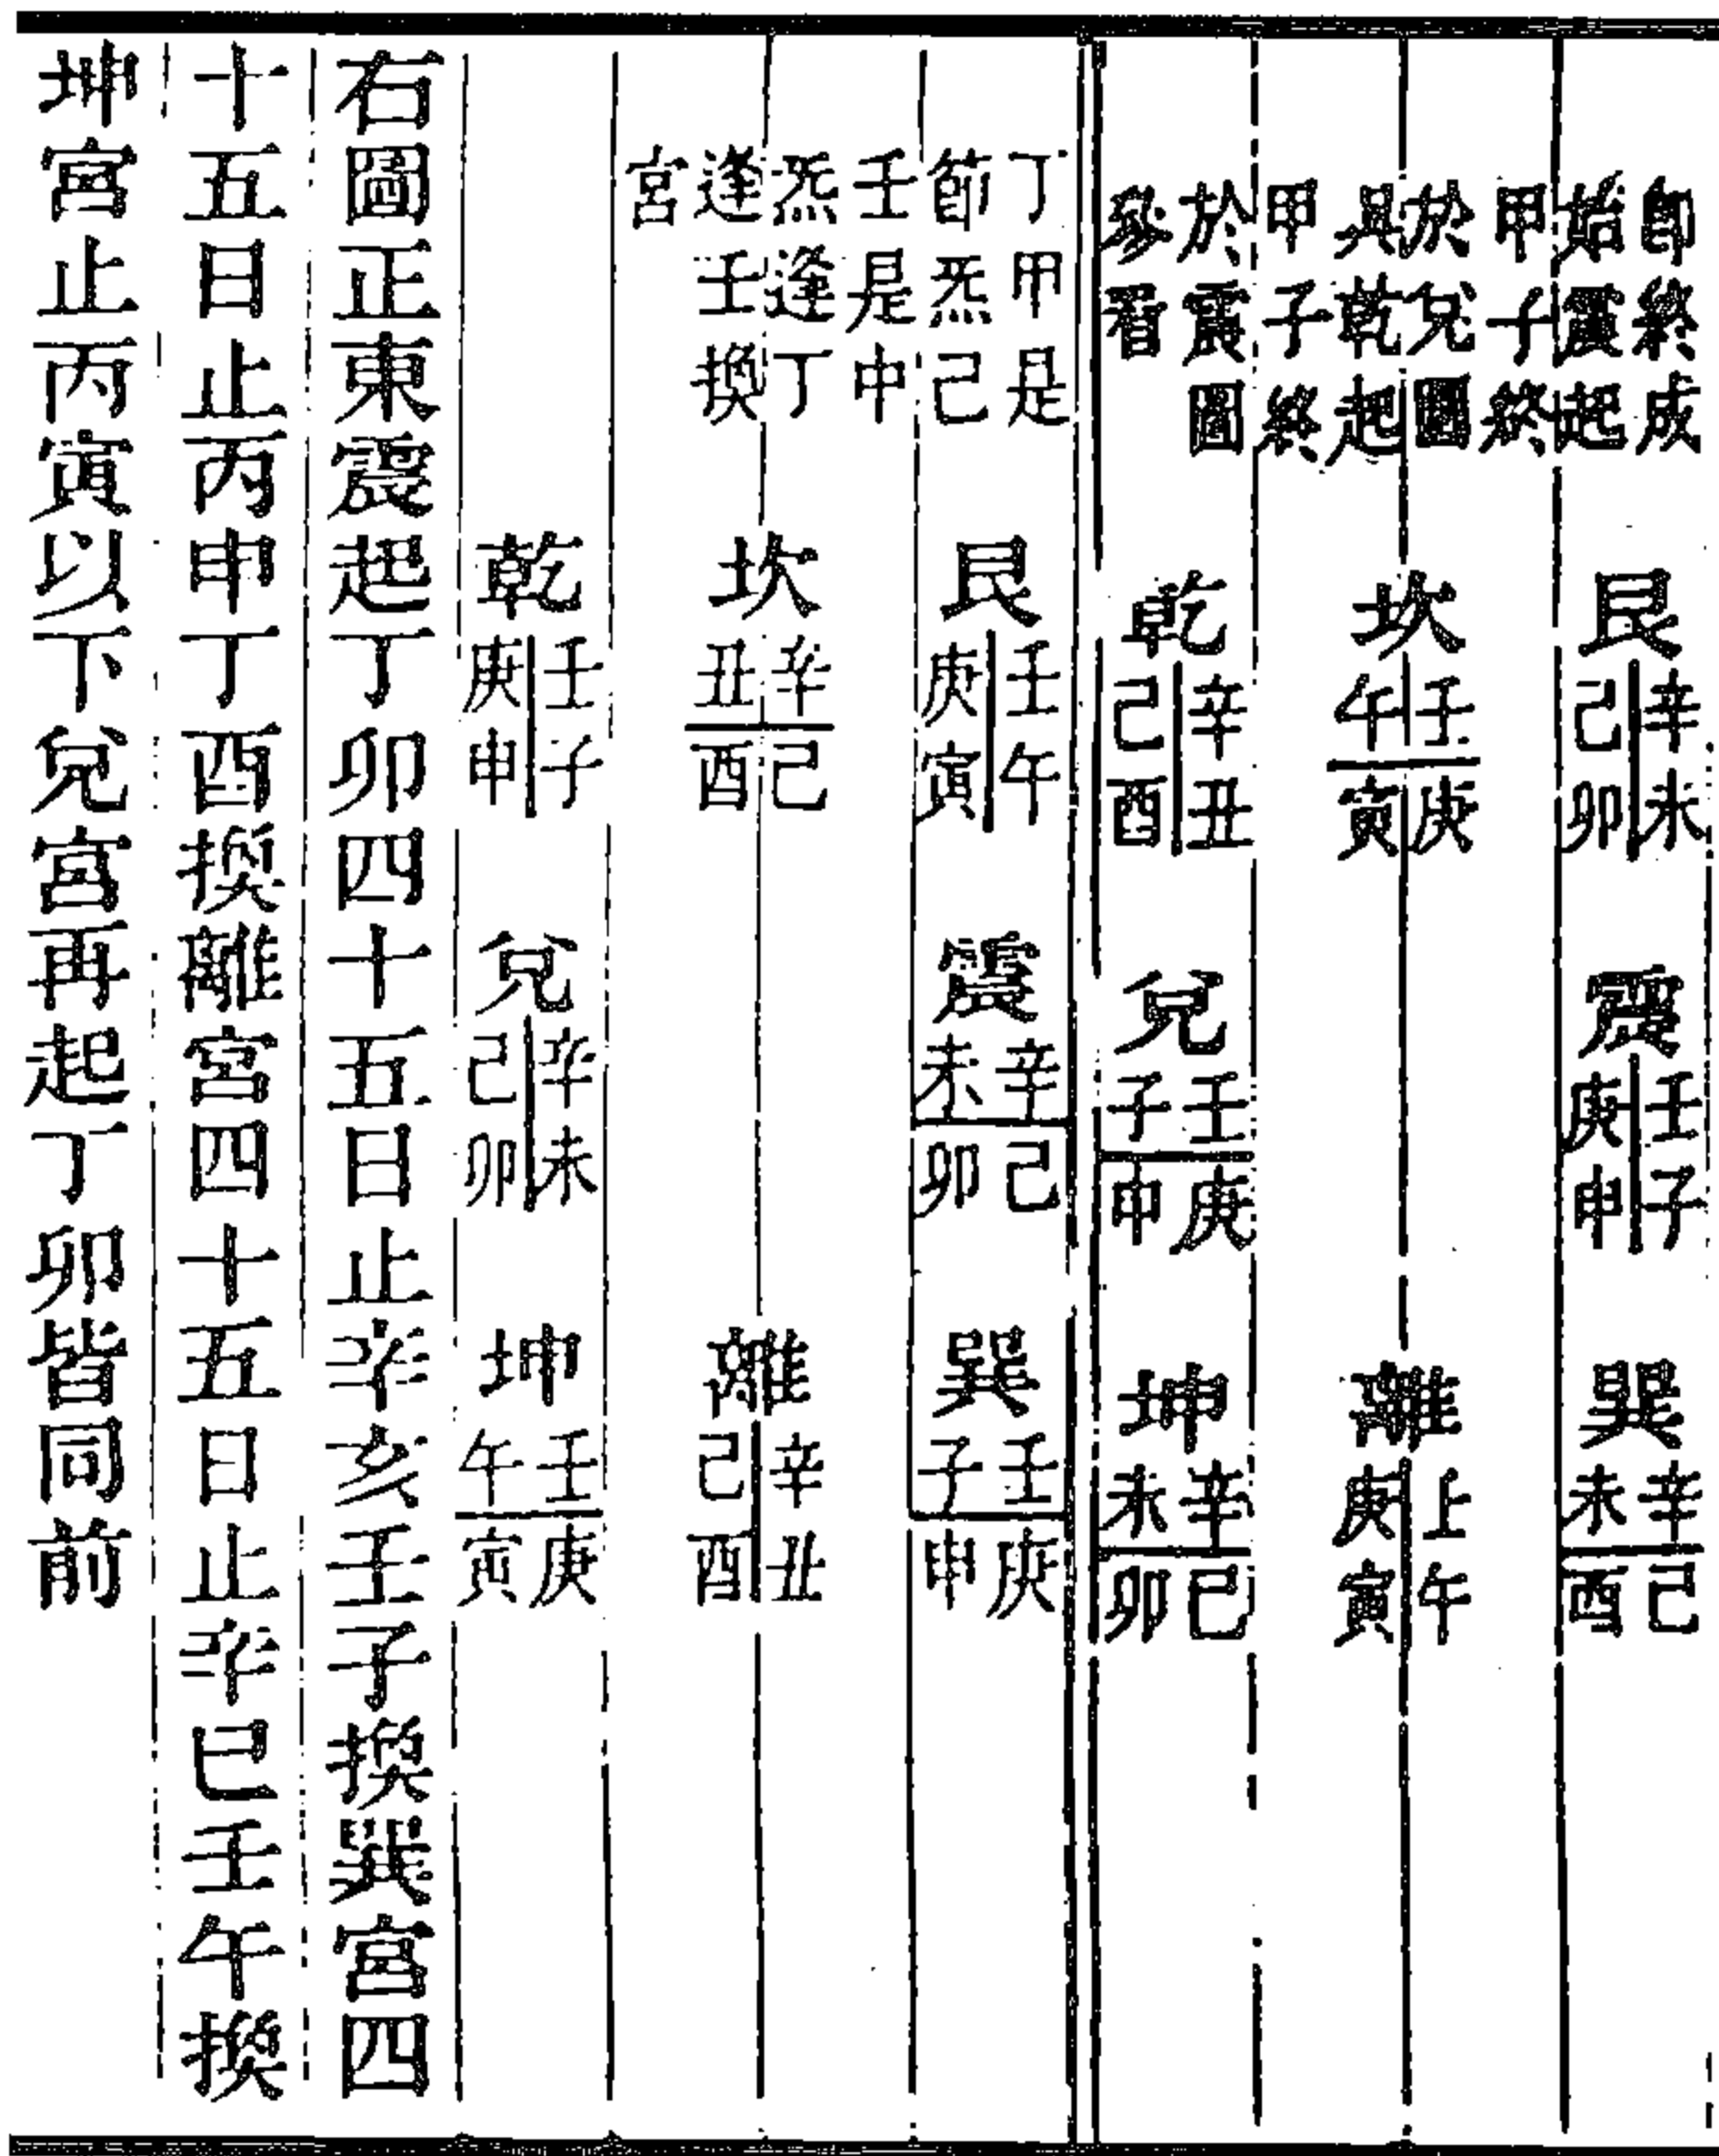 即終成
始震起
甲子終
於兌圖
異乾起
甲子終
於震圖
參看
艮 辛未 己卯
震 壬子 庚申
巽 辛未 己酉
坎 壬午 庚寅
離 午 庚寅
乾 辛丑 己酉
兌 壬子 庚申
坤 辛未 己卯
丁甲是
節炁己
壬是中
炁逢丁
逢壬換
宮
艮 壬午 庚寅
震 辛未 己卯
巽 壬子 庚申
坎 辛丑 己酉
離 辛丑 己酉
乾 壬子 庚申
兌 辛未 己卯
坤 壬午 庚寅
右圖正東震起丁卯四十五日止辛亥壬子換巽宮四
十五日止丙申丁酉換離宮四十五日止辛巳壬午換
坤宮止丙寅以下兌宮再起丁卯皆同前